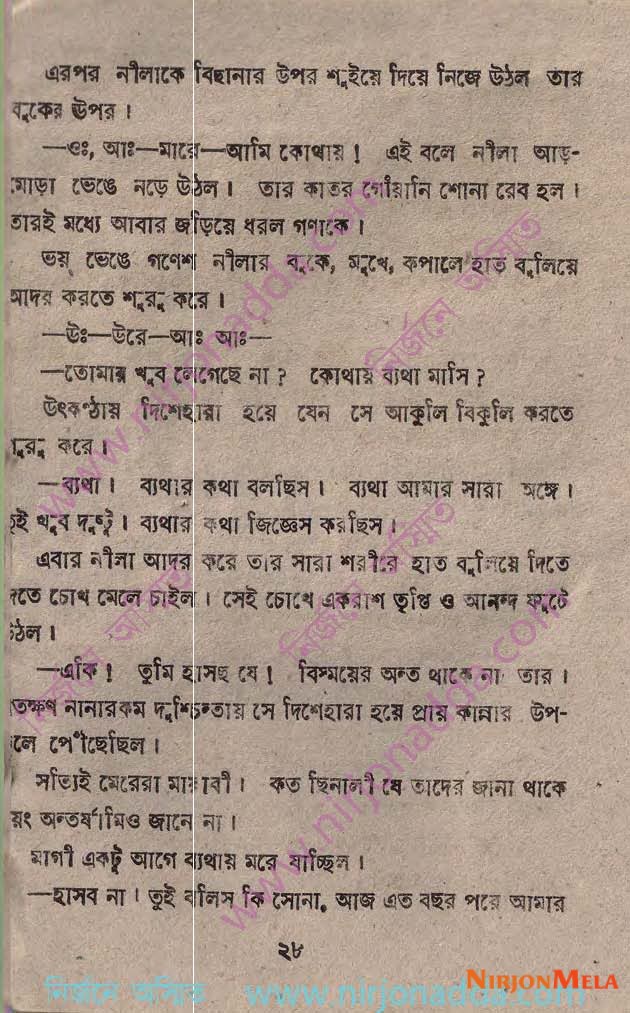 এরপর নীলাকে বিছানার উপর শুইয়ে দিয়ে নিজে উঠল তার
বুকের উপর।
—ওঃ, আঃ—মারে—আমি কোথায়! এই বলে নীলা আড়-
মোড়া ভেঙে নড়ে উঠল। তার কাতর গোঁয়ানি শোনা রেব হল।
তারই মধ্যে আবার জড়িয়ে ধরল গণাকে।
ভয় ভেঙে গণেশ নীলার বুকে, মুখে, কপালে হাত বুলিয়ে
আদর করতে শুরু করে।
—উঃ—উরে—আঃ আঃ—
—তোমার খুব লেগেছে না? কোথায় ব্যথা মাসি?
উৎকণ্ঠায় দিশেহারা হয়ে যেন সে আকুলি বিকুলি করতে
শুরু করে।
—ব্যথা। ব্যথার কথা বলছিস। ব্যথা আমার সারা অঙ্গে।
তুই খুব দুষ্টু। ব্যথার কথা জিজ্ঞেস করছিস।
এবার নীলা আদর করে তার সারা শরীরে হাত বুলিয়ে দিতে
দিতে চোখ মেলে চাইল। সেই চোখে একরাশ তৃপ্তি ও আনন্দ ফুটে
উঠল।
—একি! তুমি হাসছ যে! বিস্ময়ের অন্ত থাকে না তার।
এতক্ষণ নানারকম দুশ্চিন্তায় সে দিশেহারা হয়ে প্রায় কান্নার উপ-
লে পৌঁছেছিল।
সত্যিই মেয়েরা মায়াবী। কত ছিনালী যে তাদের জানা থাকে
স্বয়ং অন্তর্যামিও জানে না।
মাগী একটু আগে ব্যথায় মরে যাচ্ছিল।
—হাসব না। তুই বলিস কি সোনা, আজ এত বছর পরে আমার
২৮
NIRJONMELA
নির্জনে অস্মিত www.nirjonadda.com